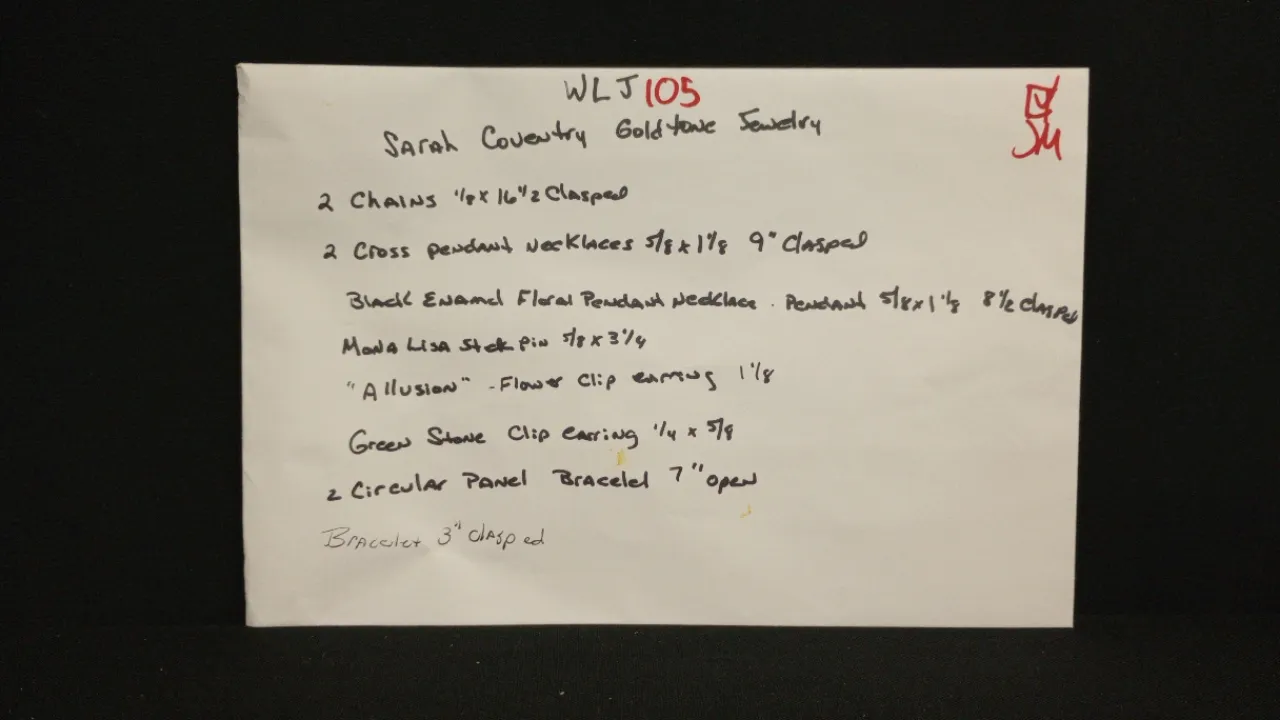 WLJ 105
JM
Sarah Coventry Goldtone Jewelry
2 Chains 1/8 x 16 1/2 Clasped
2 Cross pendant Necklaces 5/8 x 1 1/8 9" Clasped
Black Enamel Floral Pendant Necklace . Pendant 5/8 x 1 1/8 8 1/2 clasped
Mona Lisa Stick Pin 5/8 x 3 1/4
"Allusion" - Flower Clip earring 1 1/8
Green Stone Clip earring 1/4 x 5/8
2 Circular Panel Bracelet 7" open
Bracelet 3" clasped